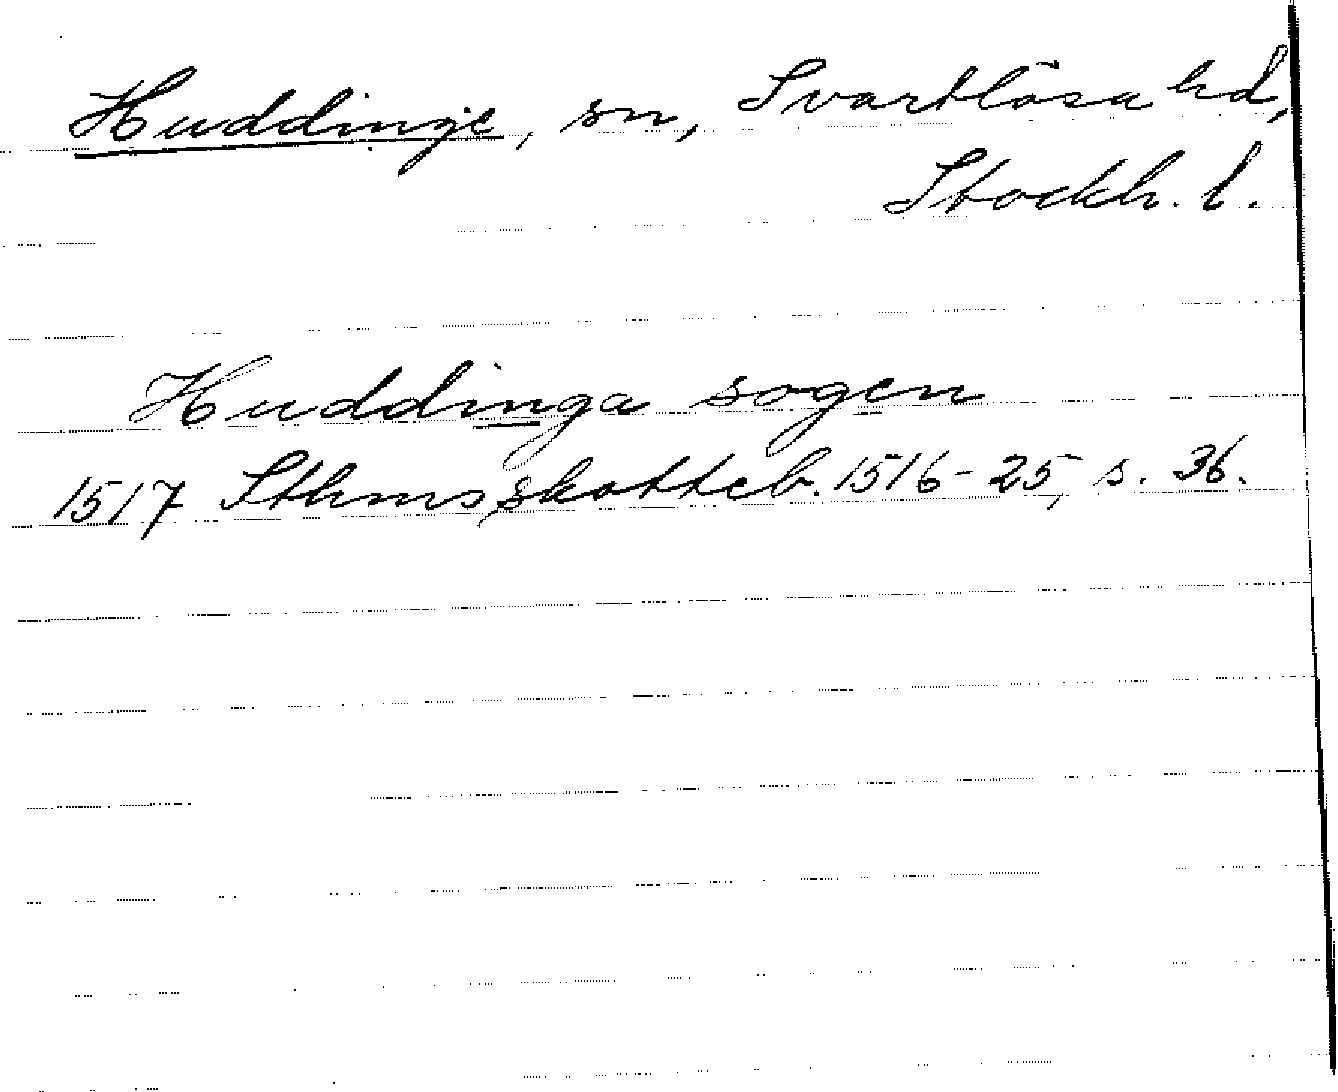 Huddinge, sn, Svartlösa hd,
Stockh. l.
Huddinga sogen
1517 Sthms skatteb. 1516-25, s. 36.